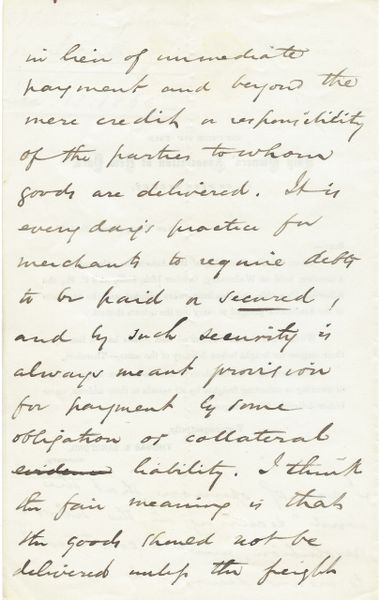 in lieu of immediate
payment and beyond the
mere credit or responsibility
of the parties to whom
goods are delivered. It is
every day's practice for
merchants to require debts
to be paid or secured,
and by such security is
always meant provision
for payment by some
obligation or collateral
evidence liability. I think
the fair meaning is that
the goods should not be
delivered unless the freight